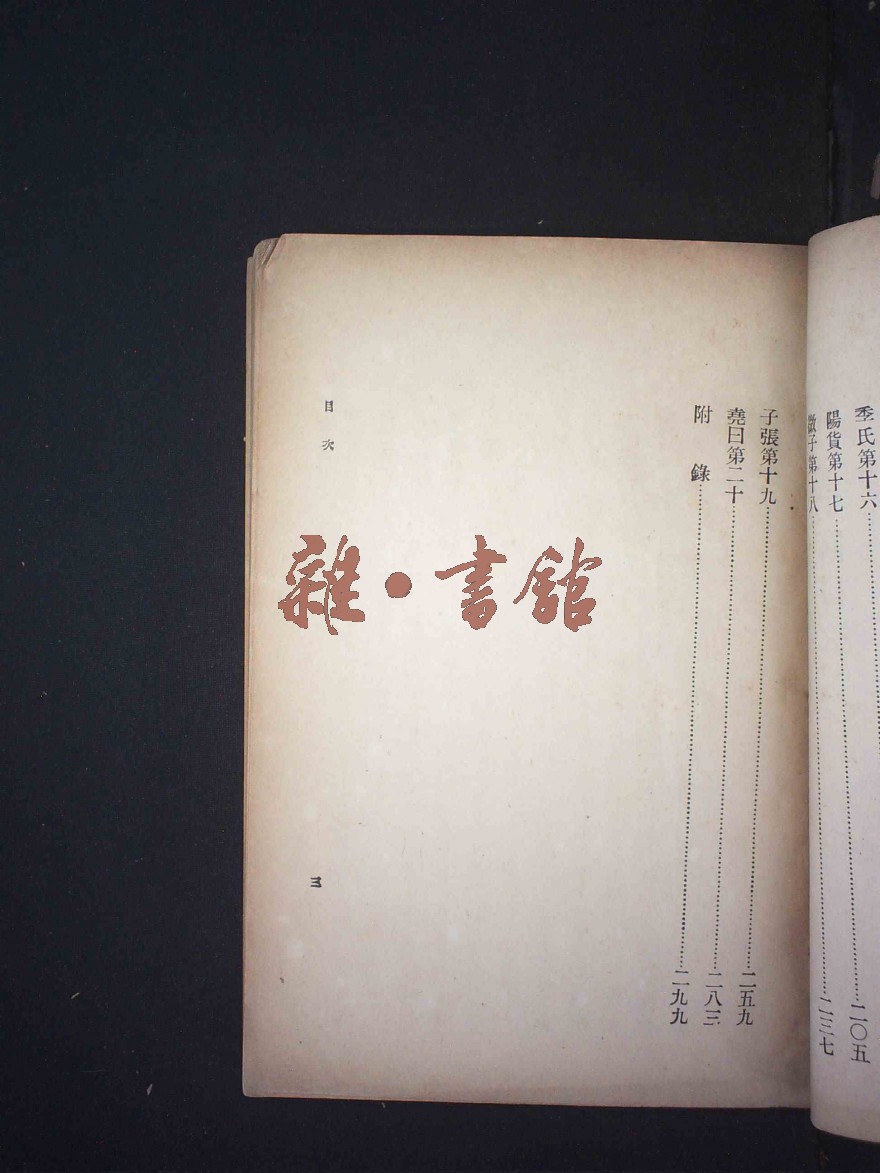 季氏第十六
陽貨第十七……二〇五
微子第十八……二三七
子張第十九……二五九
堯曰第二十……二八三
附錄……二九九
目次
三
雜·書館